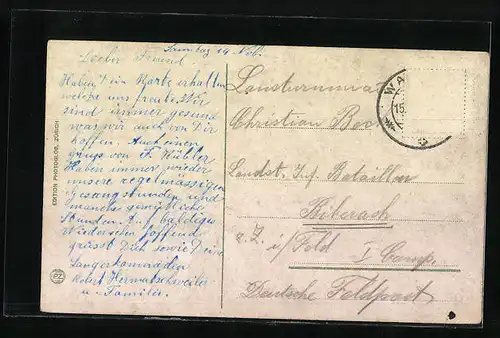 Samstag 14 Nov.
Lieber Freund!
Haben Karte erhalten
welche uns freute. Wir
sind immer gesund
was wir auch von Dir
hoffen. Auch einen
Gruss von F. Hübler
Haben immer wieder
unsere regelmässigen
Gesangstunden und
manche gemütliche
Stunden. Auf baldiges
Wiedersehen hoffend
grüsst Dich sowie Deine
Sangerkameraden
Robert
u. Familie
EDITION PHOTOGLOB, ZÜRICH
PZ
Christian
Landst. Inf. Bataillon
Biberach
z. Z. i/Feld
I Comp.
Deutsche Feldpost
WA
15